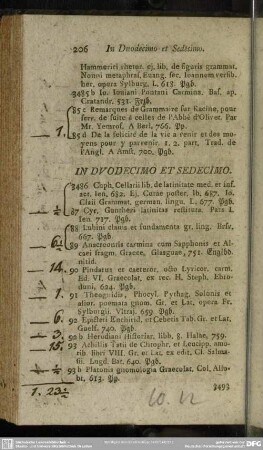 206 In Duodecimo et Sedecimo.
Hammeriri rhetor. ej. lib. de figuris grammat.
Nonni metaphras. Euang. sec. Ioannem versib.
her. opera Sylburg. L. 613. Pgb.
3485b Io. Ioniani Pontani Carmina. Bas. ap.
Cratandr. 531. Frzb.
85c Remarques de Grammaire sur Racine, pour
serv. de suite à celles de l'Abbé d'Olivet. Par
Mr. Yemrof. A Berl. 766. Pp.
1.
85d De la felicité de la vie a venir et des mo-
yens pour y parvenir. 1. 2. part. Trad. de
l'Angl. A Amst. 700. Pgb.
IN DVODECIMO ET SEDECIMO.
3486 Chph. Cellarii lib. de latinitate med. et inf.
aet. Ien. 682. Ej. Curae poster. Ib. 687. Io.
Claii Grammat. german. lingu. L. 677. Pgb.
87 Cyr. Guntheri latinitas restituta. Pars I.
Ien. 717. Pgb.
88 Lubini clavis et fundamenta gr. ling. Brse.
667. Pgb.
89 Anacreontis carmina cum Sapphonis et Al-
caei fragm. Graece, Glasguae, 751. Englbd.
nitid.
14. 90 Pindarus et caeteror. octo Lyricor. carm.
Ed. VI. Graecolat. ex rec. H. Steph. Ebro-
duni, 624. Pgb.
1. 91 Theognidis, Phocyl. Pythag. Solonis et
alior. poemata gnom. Gr. et Lat. opera Fr.
Sylburgii. Vltraj. 659. Pgb.
6. 92 Epicteti Enchirid. et Cebetis Tab. Gr. et Lat.
Guelf. 740. Pgb.
3. 92b Herodiani Historiar. libb. 8. Halae, 759.
15. 93 Achillis Tatii de Clitoph. et Leucipp. amo-
rib. libri VIII. Gr. et Lat. ex edit. Cl. Salma-
sii. Lugd. Bat. 640. Pgb.
93b Platonis gnomologia Graecolat. Col. Allo-
br. 613. Pp.
3493